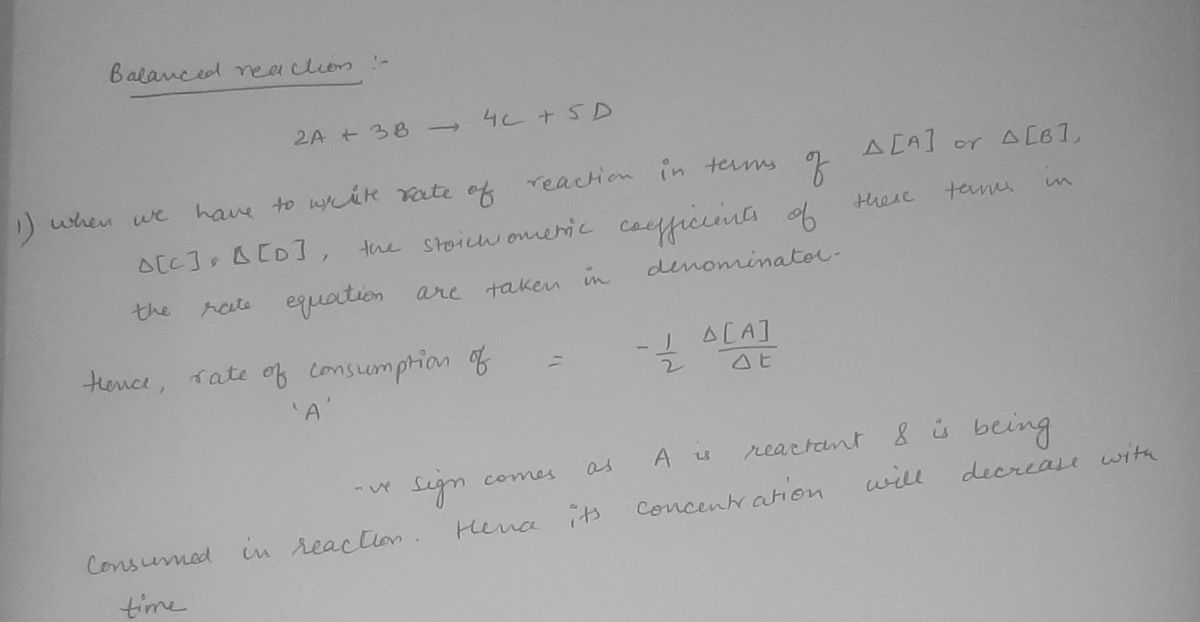 Balanced reaction :-
2A + 3B → 4C + 5D
1) when we have to write rate of reaction in terms of Δ[A] or Δ[B],
Δ[C], Δ[D], the stoichiometric coefficients of these terms in
the rate equation are taken in denominator.
Hence, rate of consumption of 'A' = - 1/2 Δ[A]/Δt
-ve sign comes as A is reactant & is being
consumed in reaction. Hence its concentration will decrease with
time